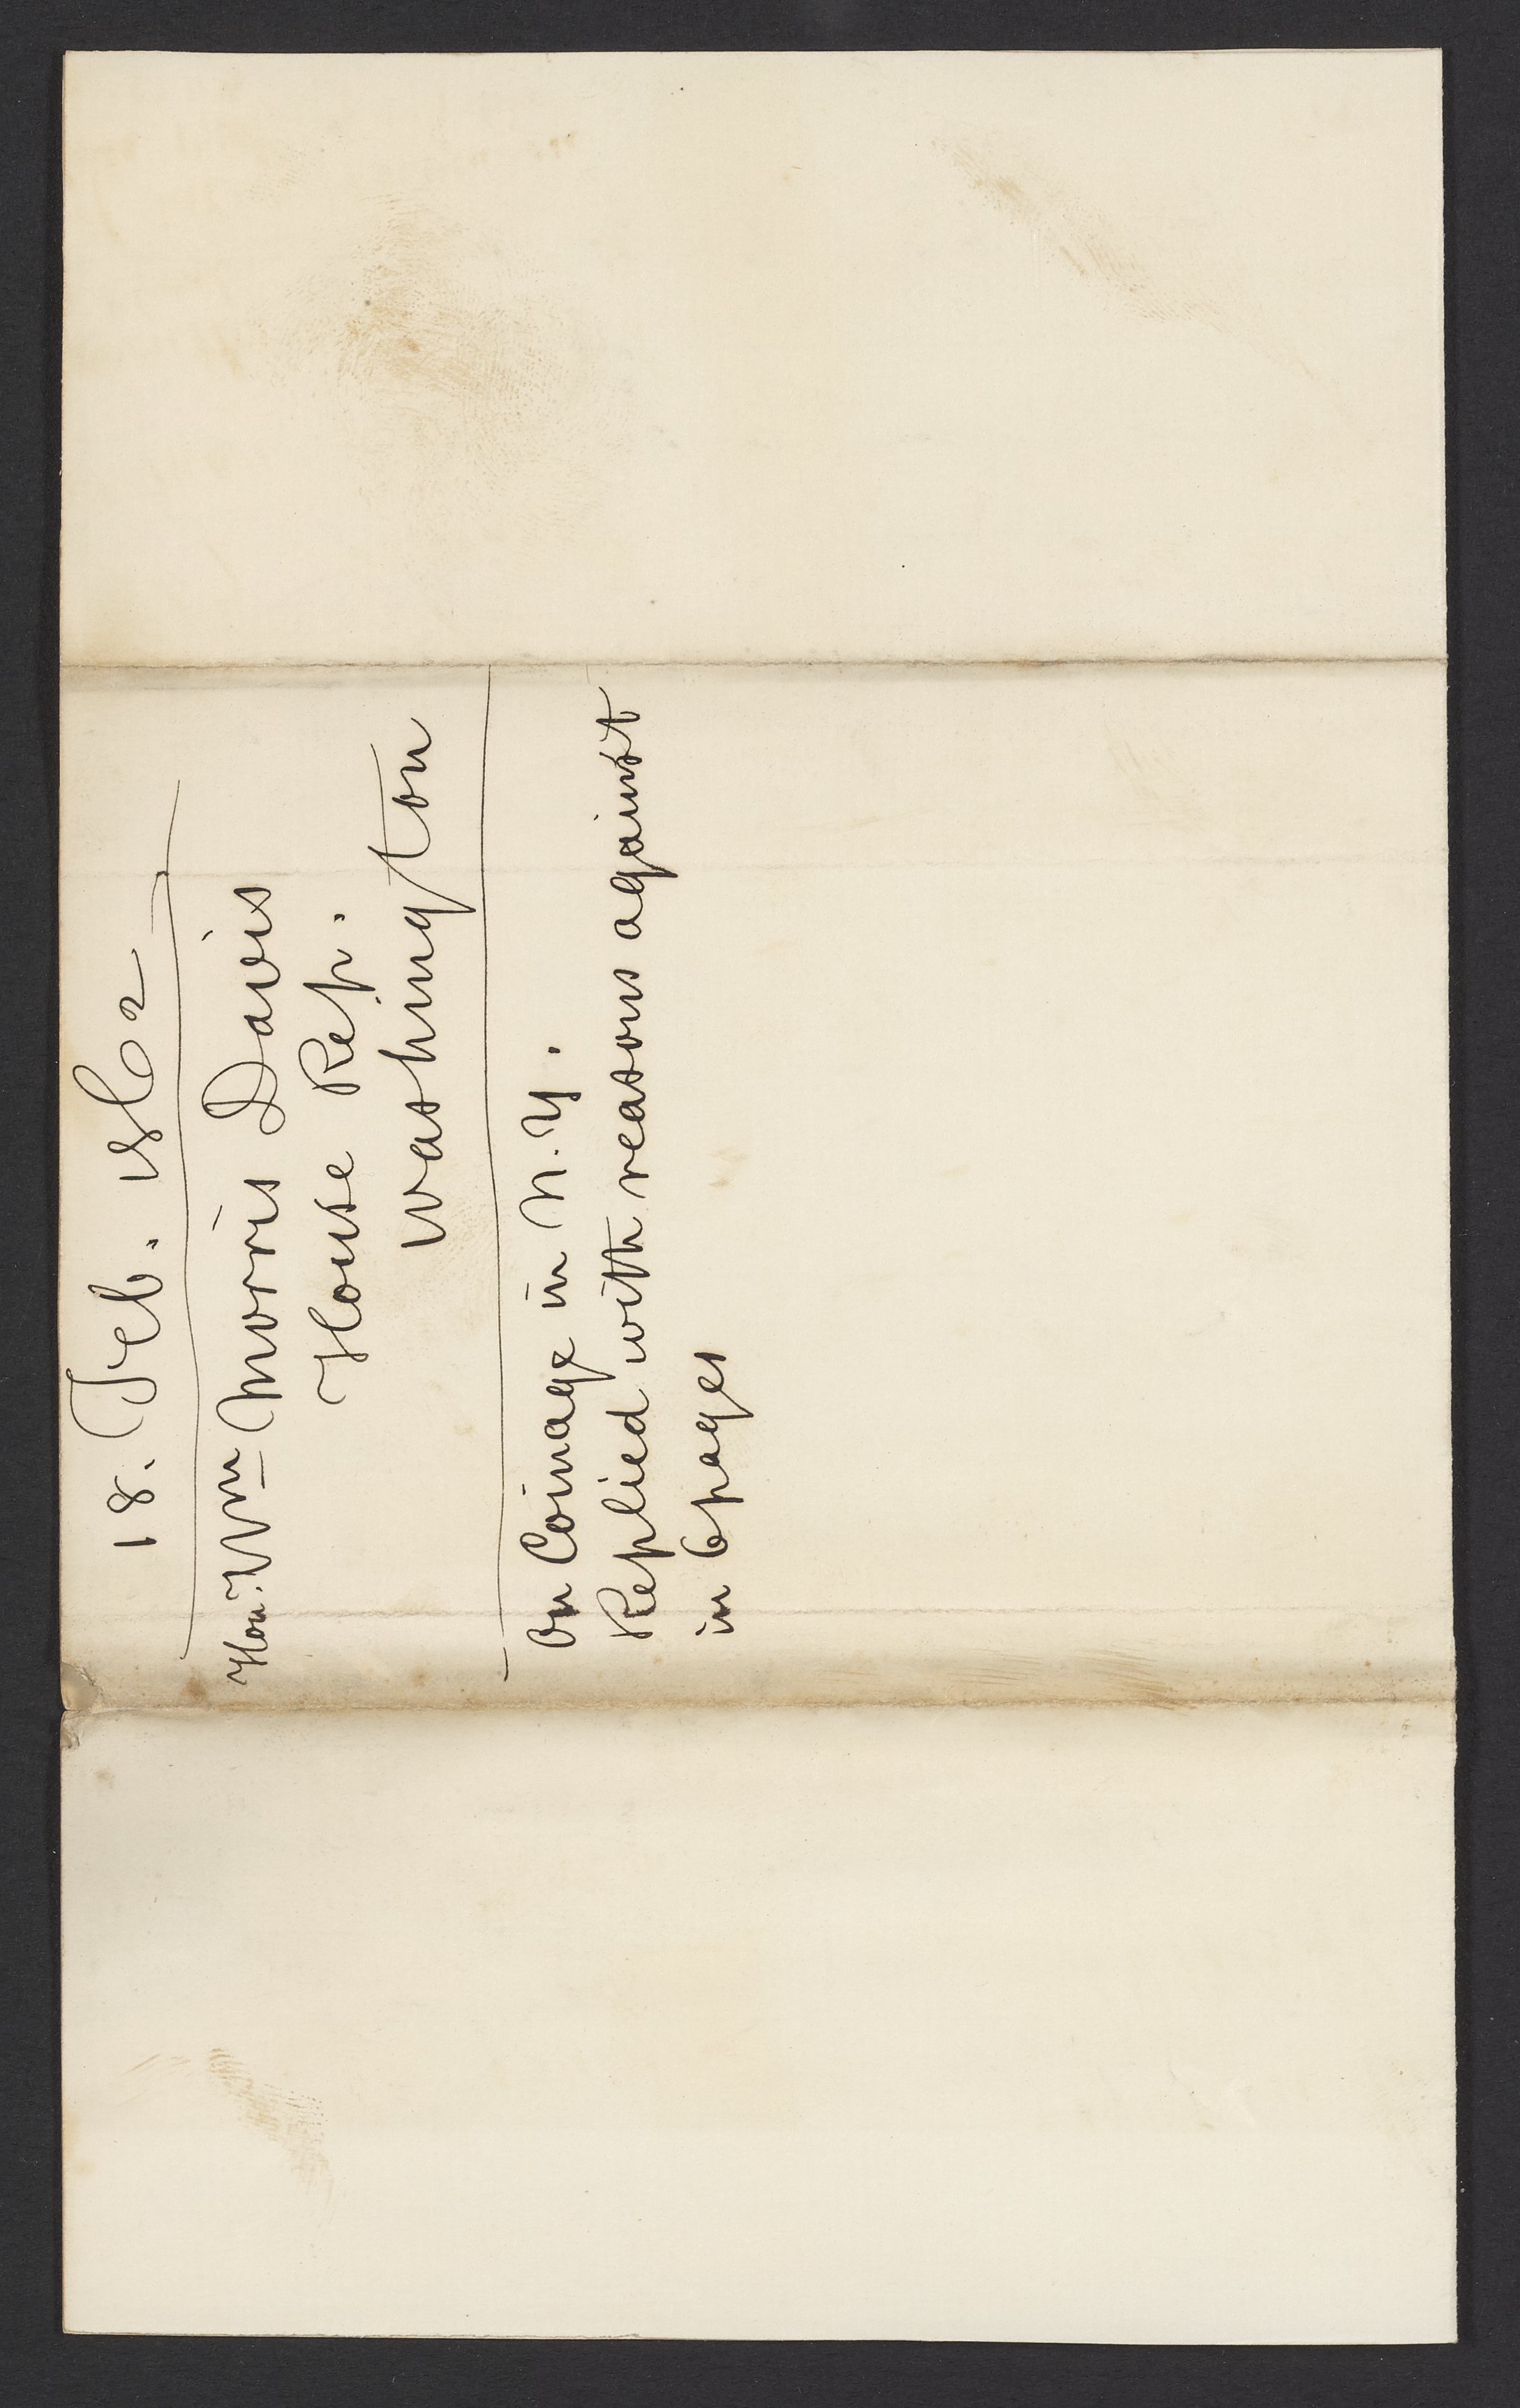 18. Feb. 1862
Hon. Wm Morris Davis
House Rep.
Washington
On Coinage in N.Y.
Replied with reasons against
in 6 pages